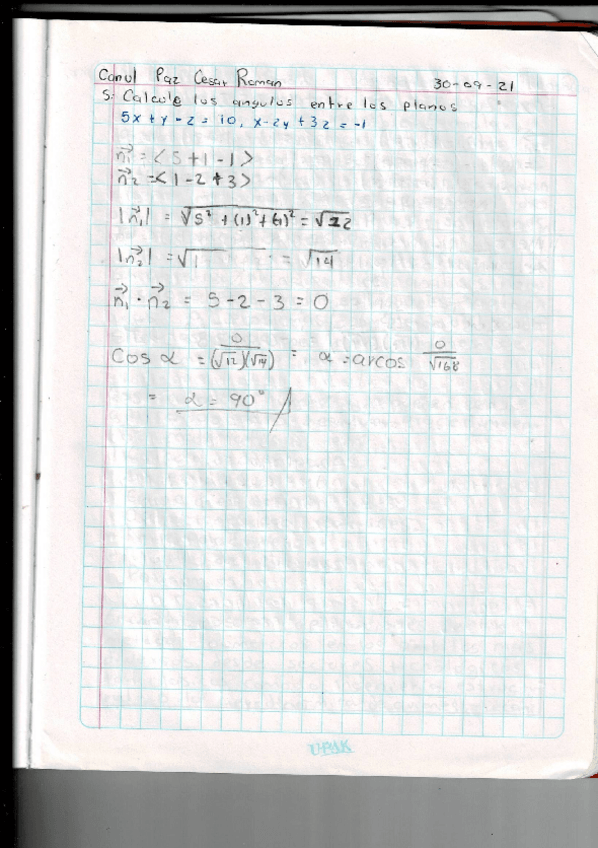 Canul Paz Cesar Roman 30-09-21
5: Calcule los angulos entre los planos
5x + y - z = 10, x - 2y + 3z = -1
n⃗1 = <5 + 1 - 1>
n⃗2 = <1 - 2 + 3>
|n⃗1| = √5² + (1)² + (-1)² = √22
|n⃗2| = √1 = √14
n⃗1 · n⃗2 = 5 - 2 - 3 = 0
Cos α = 0/(√12)(√14) = α = arcos 0/√168
= α = 90°